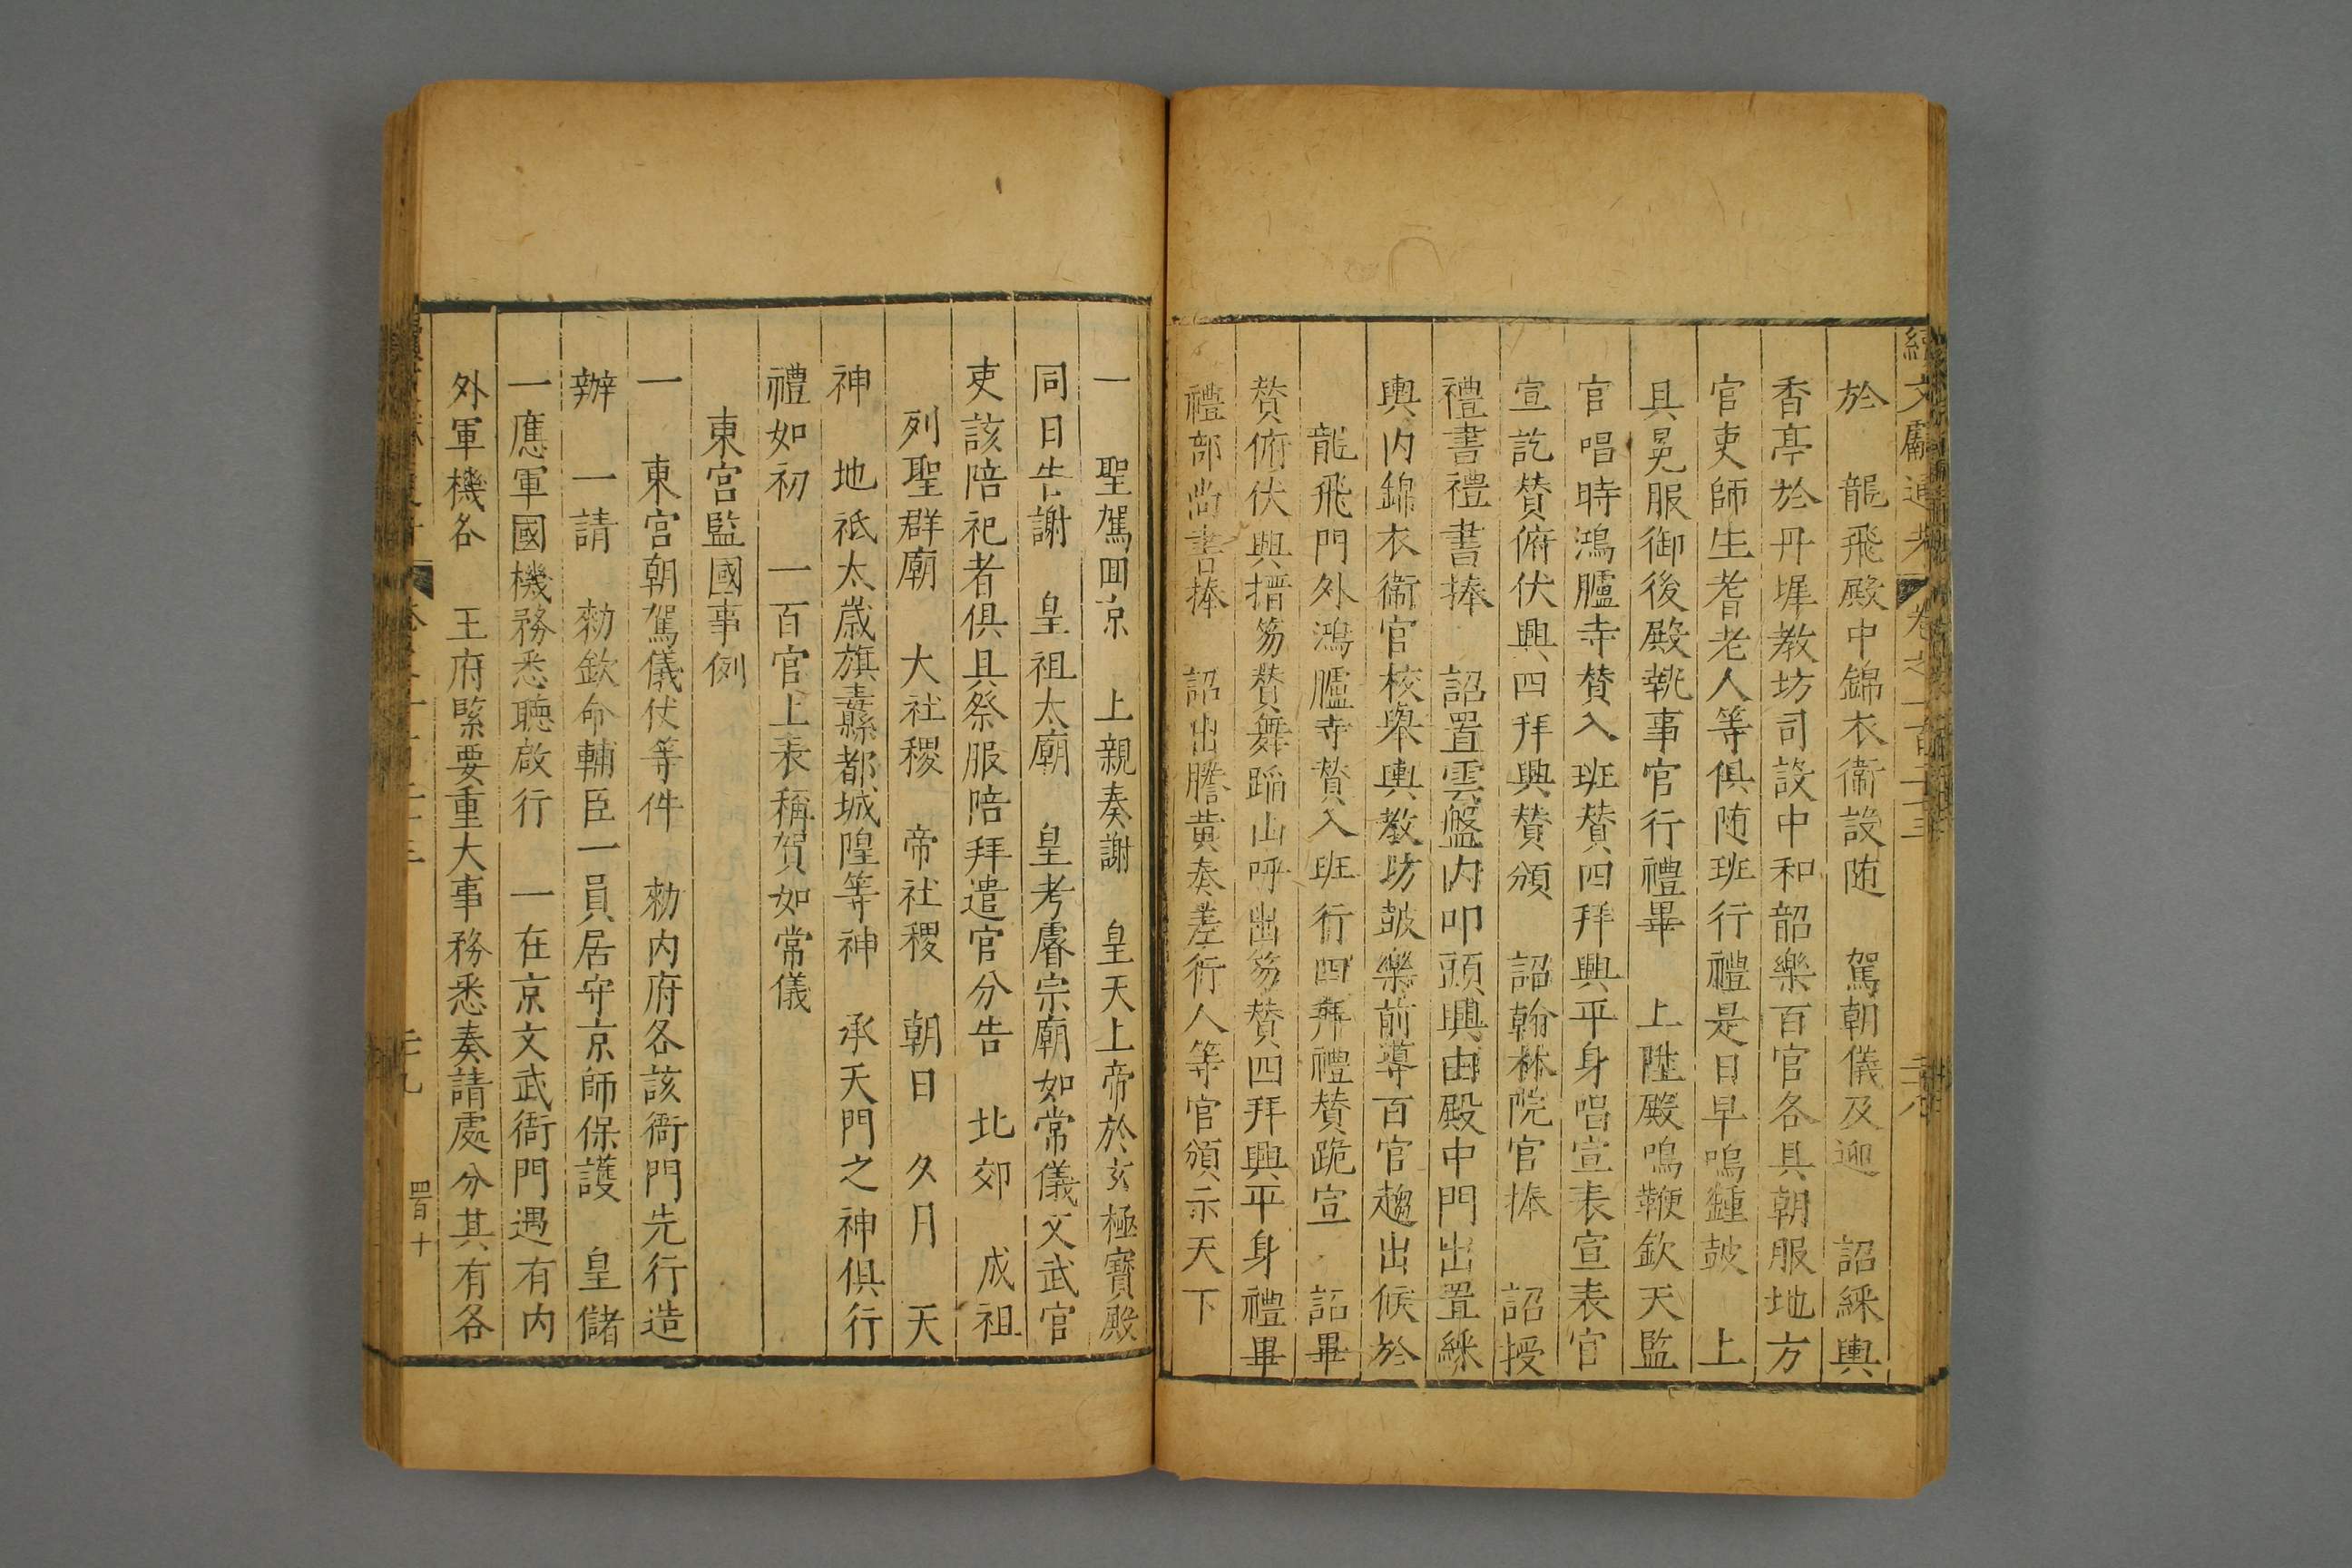 續文獻通考 卷之一百二十三 二十八
於 龍飛殿中錦衣衞設随 駕朝儀及迎 詔綵輿
香亭於丹墀教坊司設中和韶樂百官各具朝服地方
官吏師生耆老人等俱随班行禮是日早鳴鍾鼓 上
具冕服御後殿執事官行禮畢 上陞殿鳴鞭欽天監
官唱時鴻臚寺賛入班賛四拜興平身唱宣表宣表官
宣訖賛俯伏興四拜興賛頒 詔翰林院官捧 詔授
禮書禮書捧 詔置雲盤内叩頭興由殿中門出置綵
輿内錦衣衞官校舉輿教坊鼓樂前導百官趨出候於
龍飛門外鴻臚寺賛入班行四拜禮賛跪宣 詔畢
賛俯伏興搢笏賛舞蹈山呼出笏賛四拜興平身禮畢
禮部尚書捧 詔出謄黄奏差行人等官頒示天下
一 聖駕囬京 上親奏謝 皇天上帝於玄極寶殿
同日告謝 皇祖太廟 皇考睿宗廟如常儀文武官
吏該陪祀者俱具祭服陪拜遣官分告 北郊 成祖
列聖群廟 大社稷 帝社稷 朝日 夕月 天
神 地祇太歲旗纛都城隍等神 承天門之神俱行
禮如初 一百官上表稱賀如常儀
東宮監國事例
一 東宮朝駕儀仗等件 勑内府各該衙門先行造
辦 一請 勑欽命輔臣一員居守京師保護 皇儲
一應軍國機務悉聽啟行 一在京文武衙門遇有内
外軍機各 王府緊要重大事務悉奏請處分其有各
二十九 四百十